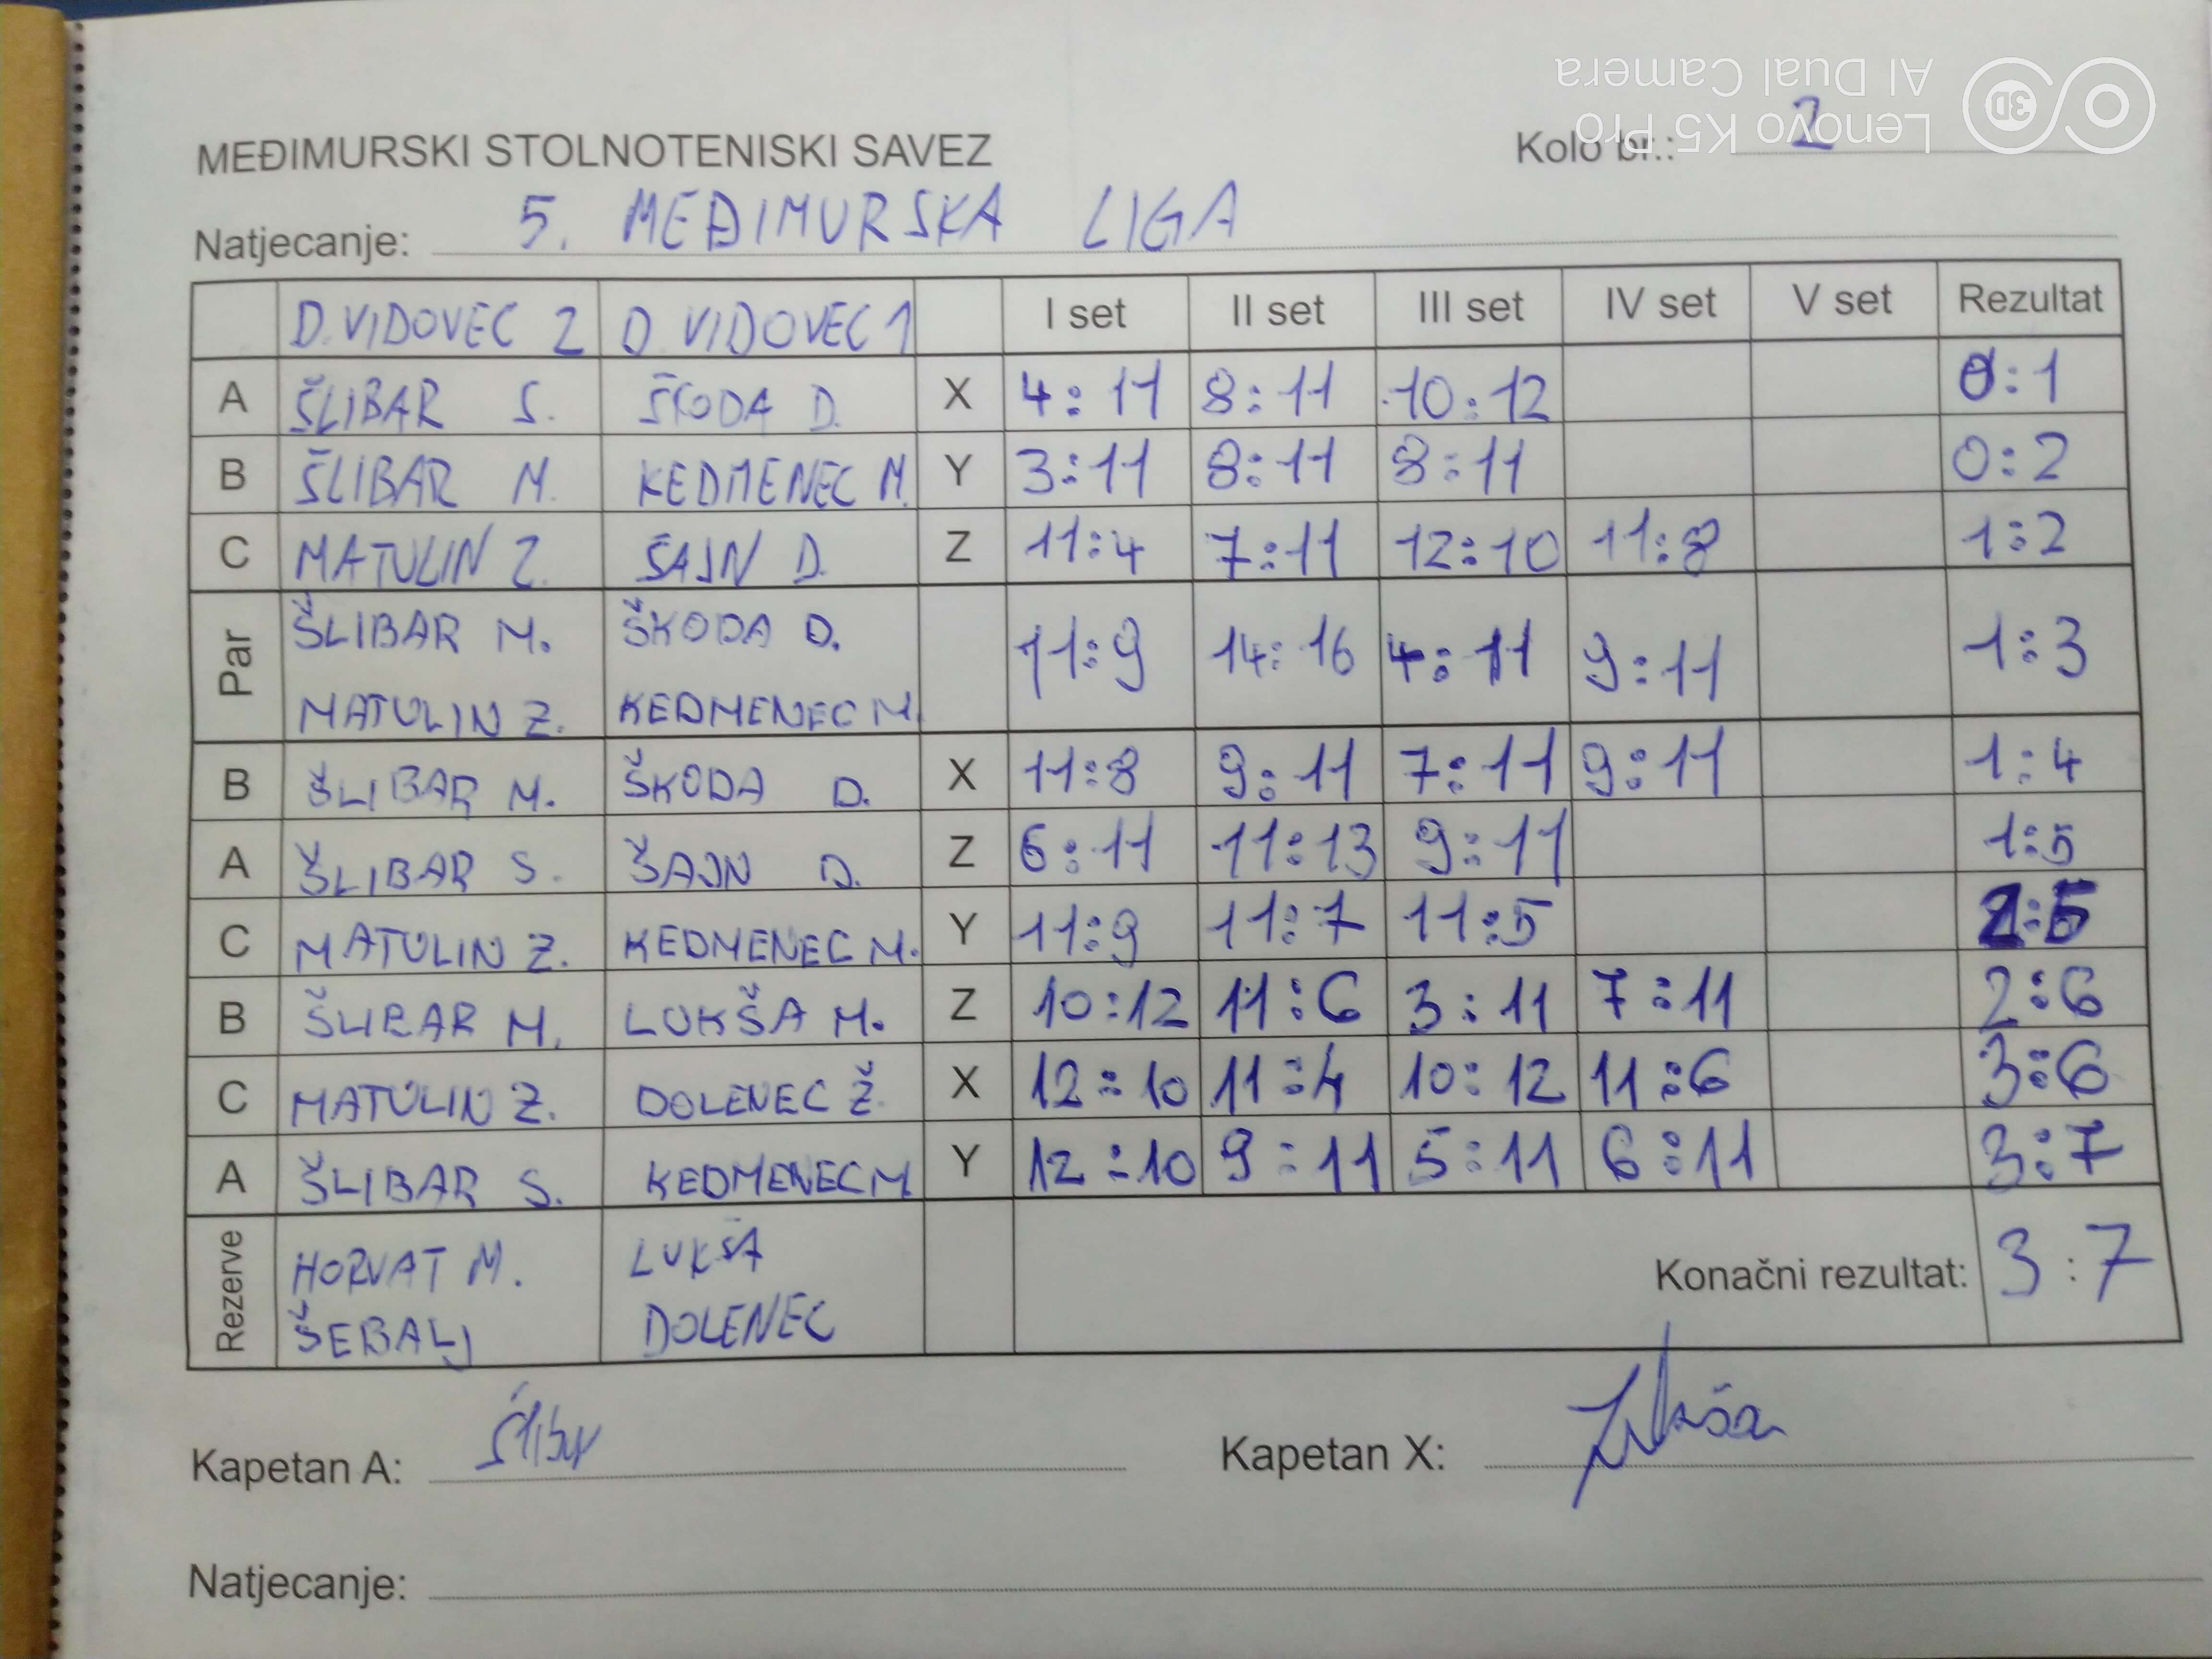 Lenovo K5 Pro
AI Dual Camera
3D
MEĐIMURSKI STOLNOTENISKI SAVEZ Kolo br.: 2
Natjecanje: 5. MEĐIMURSKA LIGA
D. VIDOVEC 2 D. VIDOVEC 1 I set II set III set IV set V set Rezultat
A ŠLIBAR S. ŠKODA D. X 4:11 8:11 10:12 0:1
B ŠLIBAR M. KEDMENEC M. Y 3:11 8:11 8:11 0:2
C MATULIN Z. ŠAJN D. Z 11:4 7:11 12:10 11:8 1:2
Par ŠLIBAR M. ŠKODA D. 11:9 14:16 4:11 9:11 1:3
MATULIN Z. KEDMENEC M.
B ŠLIBAR M. ŠKODA D. X 11:8 9:11 7:11 9:11 1:4
A ŠLIBAR S. ŠAJN D. Z 6:11 11:13 9:11 1:5
C MATULIN Z. KEDMENEC M. Y 11:9 11:7 11:5 2:5
B ŠLIBAR M. LUKŠA M. Z 10:12 11:6 3:11 7:11 2:6
C MATULIN Z. DOLENEC Ž. X 12:10 11:4 10:12 11:6 3:6
A ŠLIBAR S. KEDMENEC M. Y 12:10 9:11 5:11 6:11 3:7
Rezerve HORVAT M. LUKŠA Konačni rezultat: 3:7
ŠEBALJ DOLENEC
Kapetan A: Kapetan X: Lukša
Natjecanje: